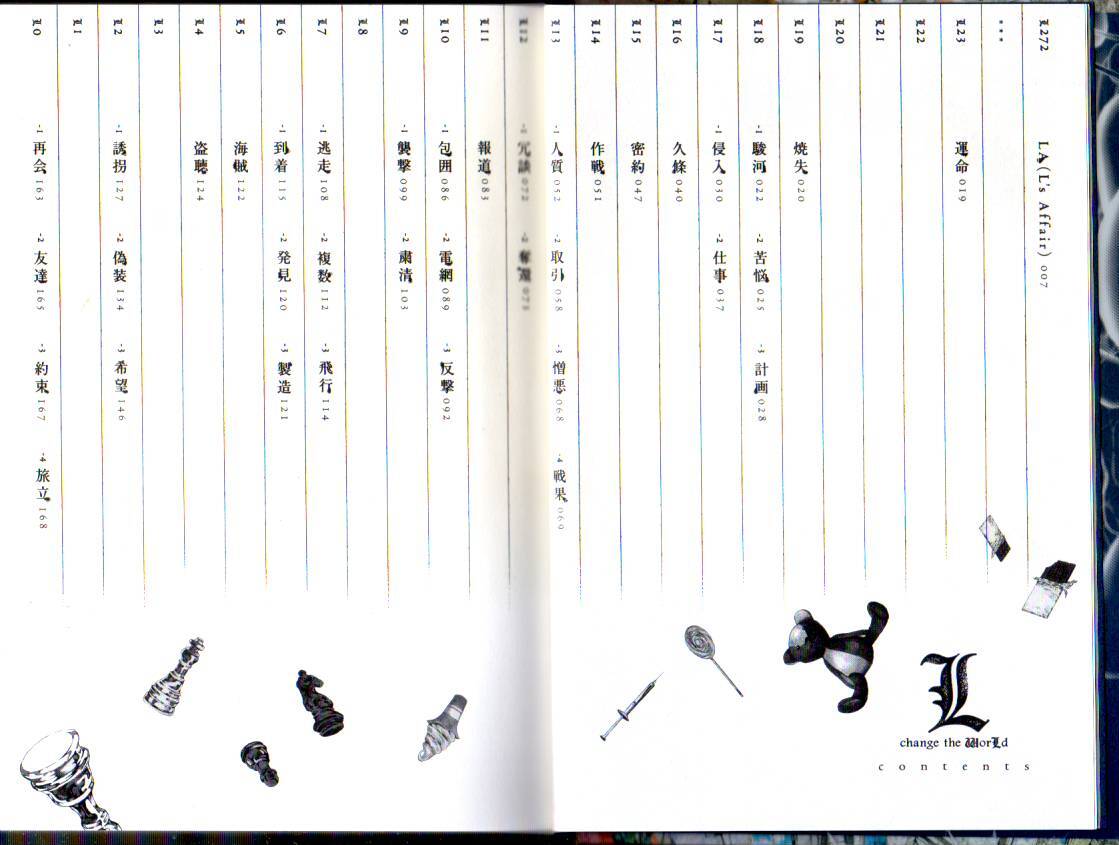 L272 LA(L's Affair) 007
...
L23 運命 019
L22
L21
L20
L19 焼失 020
L18 -1 駿河 022 -2 苦悩 025 -3 計画 028
L17 -1 侵入 030 -2 仕事 037
L16 久條 040
L15 密約 047
L14 作戦 051
L13 -1 人質 052 -2 取引 058 -3 憎悪 068 -4 戦果 069
L12 -1 冗談 072 -2 奪還 078
L11 報道 083
L10 -1 包囲 086 -2 電網 089 -3 反撃 092
L9 -1 襲撃 099 -2 粛清 103
L8
L7 -1 逃走 108 -2 複数 112 -3 飛行 114
L6 -1 到着 115 -2 発見 120 -3 製造 121
L5 海賊 122
L4 盗聴 124
L3
L2 -1 誘拐 127 -2 偽装 134 -3 希望 146
L1
L0 -1 再会 163 -2 友達 165 -3 約束 167 -4 旅立 168
L
change the WorLd
contents